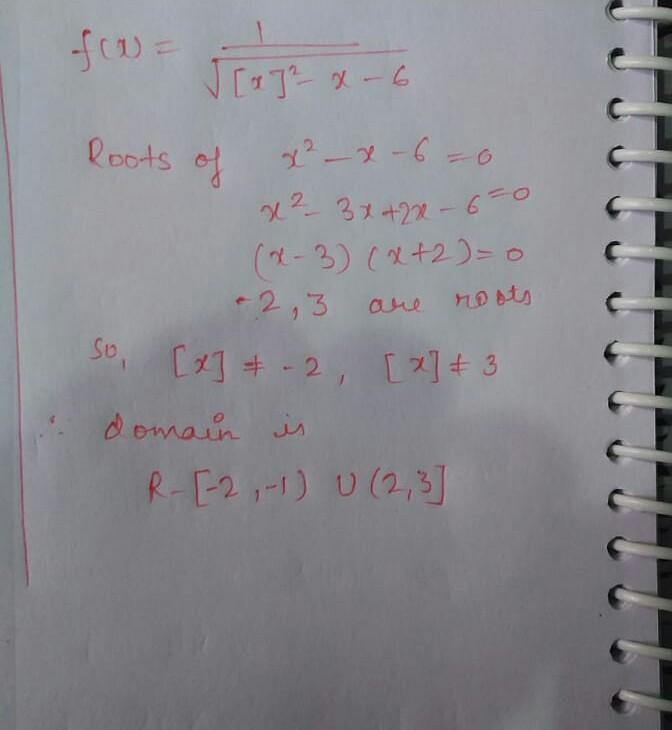 f(x) = 1
√[x]² - x - 6
Roots of x² - x - 6 = 0
x² - 3x + 2x - 6 = 0
(x - 3) (x + 2) = 0
-2, 3 are roots
So, [x] ≠ -2, [x] ≠ 3
∴ domain is
R - [-2, -1) ∪ (2, 3]